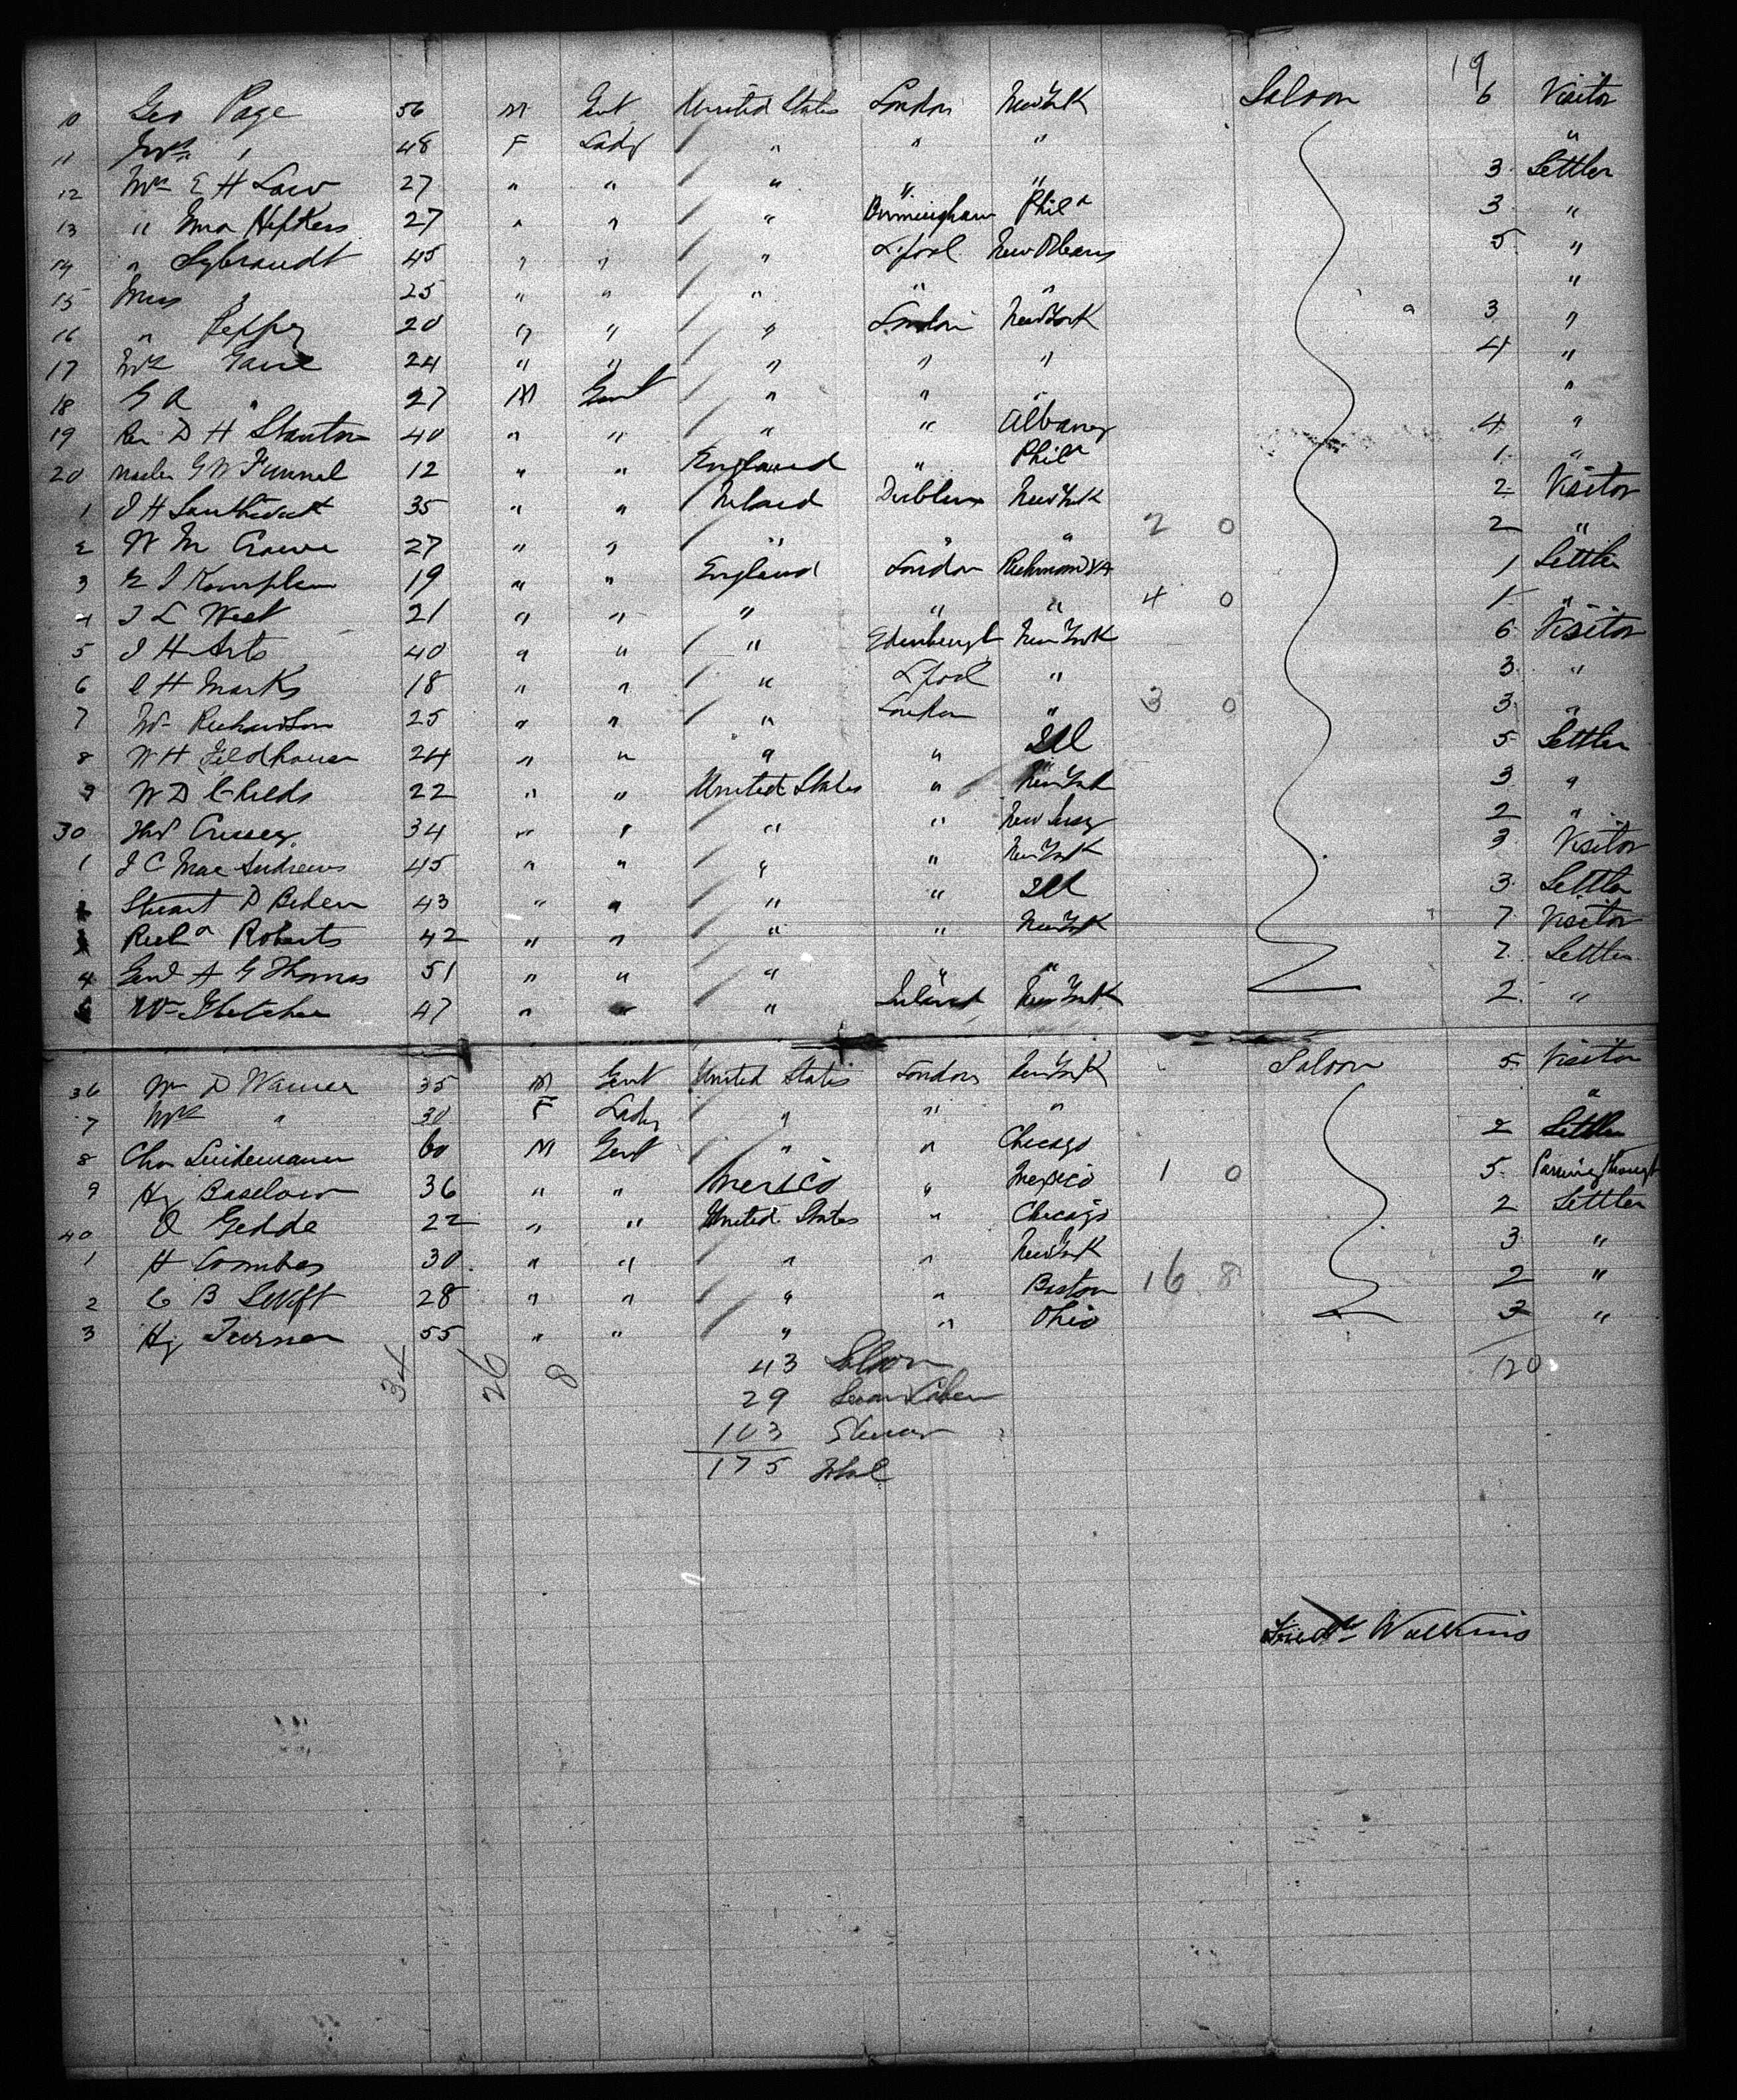 19
10 Geo Page 56 M Gent United States London New York Saloon 6 Visitor
11 Mrs " 48 F Lady " " " "
12 Mrs E H Law 27 " " " " " 3 Settler
13 " Hefkers 27 " " " Birmingham Phila 3 "
14 " Sybrandt 45 " " " L'pool New Orleans 5 "
15 Miss " 25 " " " " " "
16 " Peffer 20 " " " London New York 3 "
17 Mrs 24 " " " " " 4 "
18 G A " 27 M Gent " " " "
19 Rev D H Stanton 40 " " " " Albany 4 "
20 Master G W Funnel 12 " " England " Phila 1 "
1 J H Southwick 35 " " Ireland Dublin New York 2 Visitor
2 W M Crowe 27 " " " " " 2 0 2 "
3 19 " " England London Richmond VA 1 Settler
4 J L West 21 " " " " " 4 0 1 "
5 J H Arts 40 " " " Edinburgh New York 6 Visitor
6 H Marks 18 " " " L'pool " 3 "
7 Wm Richardson 25 " " " London " 3 0 3 "
8 W H Feldhouse 24 " " " " Ill 5 Settler
9 W D Childs 22 " " United States " New York 3 "
30 Cressey 34 " " " " New Jersey 2 "
1 J C Mac Andrews 45 " " " " New York 3 Visitor
Stuart D 43 " " " " Ill 3 Settler
Richd Roberts 42 " " " " New York 7 Visitor
4 Genl A G Thomas 51 " " " " " 2 Settler
Wm Fletcher 47 " " " Ireland New York 2 "
36 Wm D Warner 35 M Gent United States London New York Saloon 5 Visitor
7 Mrs " 30 F Lady " " " "
8 Chas Lindemann 60 M Gent " " Chicago 2 Settler
9 Hy Baselow 36 " " Mexico " Mexico 1 0 5 Passing through
40 O Gedde 22 " " United States " Chicago 2 Settler
1 H Coombes 30 " " " " New York 3 "
2 C B Swift 28 " " " " Boston 16 8 2 "
3 Hy Turner 55 " " " " Ohio 3 "
34 26 8 43 Saloon 120
29 Second Cabin
103 Steerage
175 Total
Watkins